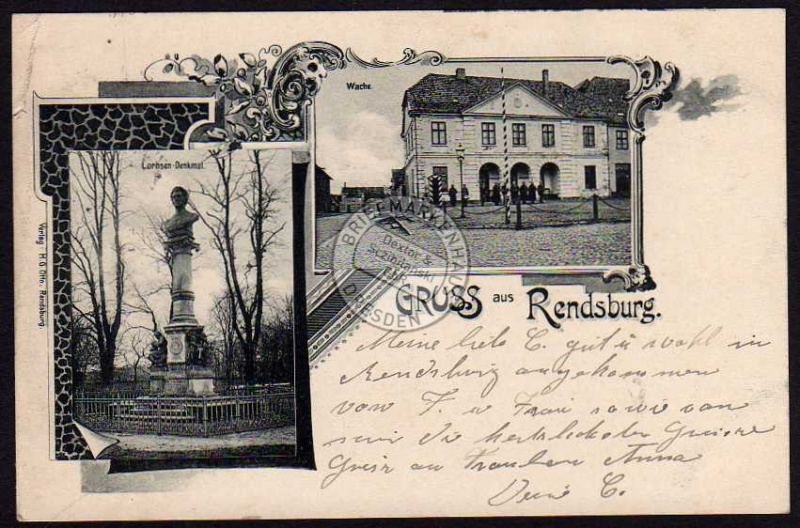 Wache.
Lornsen-Denkmal.
Verlag: H. G. Otto, Rendsburg.
BRIEFMARKENHAUS
Dextor &
GbR
DRESDEN
GRUSS aus Rendsburg.
Meine liebe C. gut u wohl in
Rendsburg angekommen
vom F. u Frau sowie von
mir die herzlichsten Grüsse
Gruss an Fraulen Anna
Deine C.